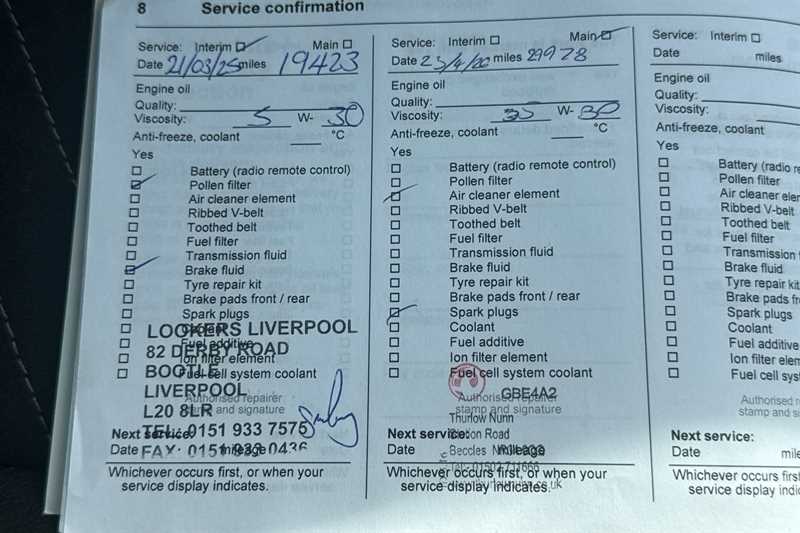 8 Service confirmation
Service: Interim Main
Date 21/03/25 miles 19423
Engine oil
Quality:
Viscosity: 5 W- 30
Anti-freeze, coolant °C
Yes
Battery (radio remote control)
Pollen filter
Air cleaner element
Ribbed V-belt
Toothed belt
Fuel filter
Transmission fluid
Brake fluid
Tyre repair kit
Brake pads front / rear
Spark plugs
Coolant
Fuel additive
Ion filter element
Fuel cell system coolant
LOOKERS LIVERPOOL
82 DERBY ROAD
BOOTLE
LIVERPOOL
L20 8LR
TEL: 0151 933 7575
FAX: 0151 933 0436
Authorised repairer
stamp and signature
Next service:
Date mileage
Whichever occurs first, or when your
service display indicates.
Service: Interim Main
Date miles 29978
Engine oil
Quality:
Viscosity: W- 30
Anti-freeze, coolant °C
Yes
Battery (radio remote control)
Pollen filter
Air cleaner element
Ribbed V-belt
Toothed belt
Fuel filter
Transmission fluid
Brake fluid
Tyre repair kit
Brake pads front / rear
Spark plugs
Coolant
Fuel additive
Ion filter element
Fuel cell system coolant
GBE4A2
Authorised repairer
stamp and signature
Thurlow Nunn
Road
Beccles
Next service:
Date mileage
Whichever occurs first, or when your
service display indicates.
Service: Interim
Date miles
Engine oil
Quality:
Viscosity:
Anti-freeze, coolant
Yes
Battery (radio rem
Pollen filter
Air cleaner elem
Ribbed V-belt
Toothed belt
Fuel filter
Transmission
Brake fluid
Tyre repair kit
Brake pads fr
Spark plugs
Coolant
Fuel additive
Ion filter elem
Fuel cell syst
Authorised
stamp and
Next service:
Date mile
Whichever occurs first
service display indi